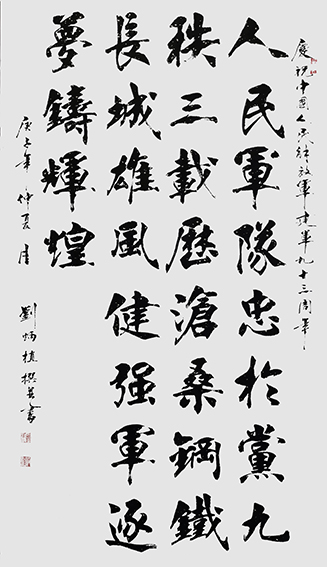 慶祝中國人民解放軍建軍九十三周年
人民軍隊忠於黨九
秩三載歷滄桑鋼鐵
長城雄風健强軍逐
夢鑄輝煌
庚子年仲夏月
劉炳植撰并書